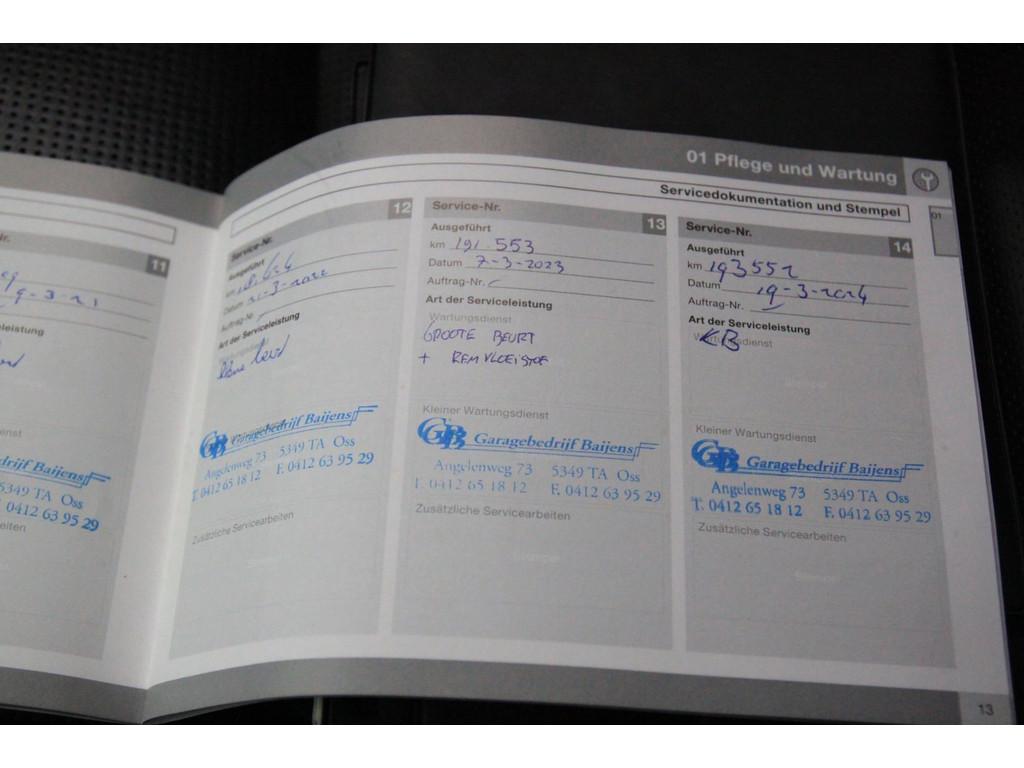 01 Pflege und Wartung
Servicedokumentation und Stempel
01
11
9-3-21
Serviceleistung
Garagebedrijf Baijens
5349 TA Oss
0412 63 95 29
Service-Nr. 12
Ausgeführt
km
Datum 21-3-2022
Auftrag-Nr.
Art der Serviceleistung
Wartungsdienst
Kleine beurt
GB Garagebedrijf Baijens
Angelenweg 73 5349 TA Oss
T. 0412 65 18 12 F. 0412 63 95 29
Zusätzliche Servicearbeiten
Service-Nr. 13
Ausgeführt
km 191.553
Datum 7-3-2023
Auftrag-Nr.
Art der Serviceleistung
Wartungsdienst
GROOTE BEURT
+ REMVLOEISTOF
Kleiner Wartungsdienst
GB Garagebedrijf Baijens
Angelenweg 73 5349 TA Oss
T. 0412 65 18 12 F. 0412 63 95 29
Zusätzliche Servicearbeiten
Service-Nr. 14
Ausgeführt
km 193552
Datum 19-3-2024
Auftrag-Nr.
Art der Serviceleistung
Wartungsdienst
KB
Kleiner Wartungsdienst
GB Garagebedrijf Baijens
Angelenweg 73 5349 TA Oss
T. 0412 65 18 12 F. 0412 63 95 29
Zusätzliche Servicearbeiten
13